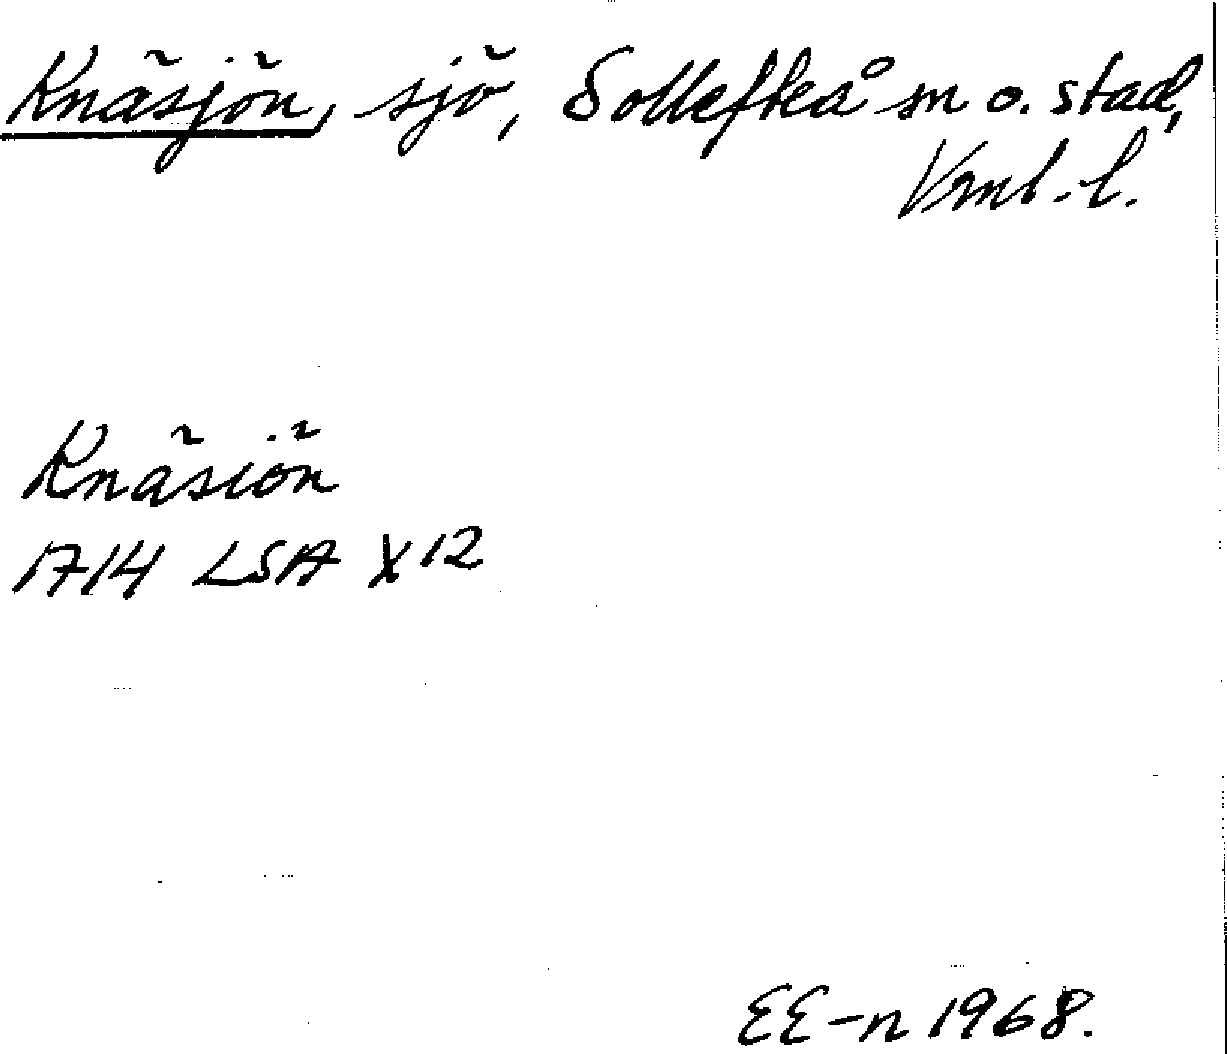 Knäsjön, sjö, Sollefteå sn o. stad,
Vrnl. l.
Knäsiön
1714 LSA X12
EE-n 1968.